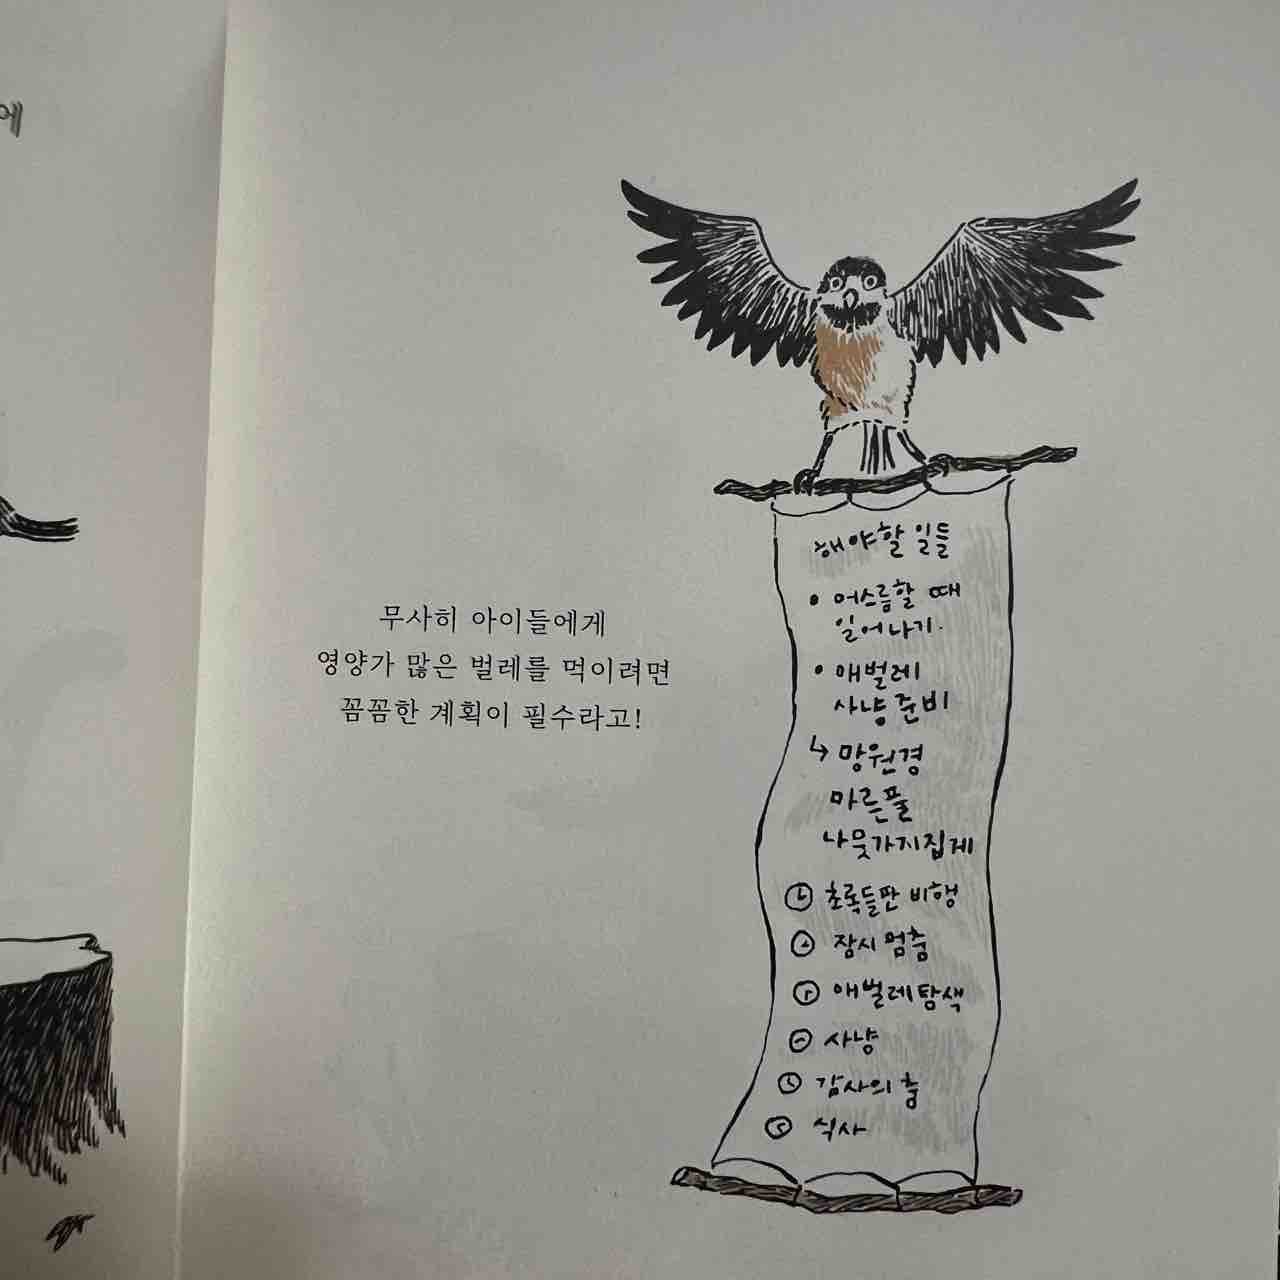 에
무사히 아이들에게
영양가 많은 벌레를 먹이려면
꼼꼼한 계획이 필수라고!
해야할 일들
• 어스름할 때
일어나기.
• 애벌레
사냥 준비
↳ 망원경
마른풀
나뭇가지집게
초록들판 비행
잠시 멈춤
애벌레 탐색
사냥
감사의 춤
식사